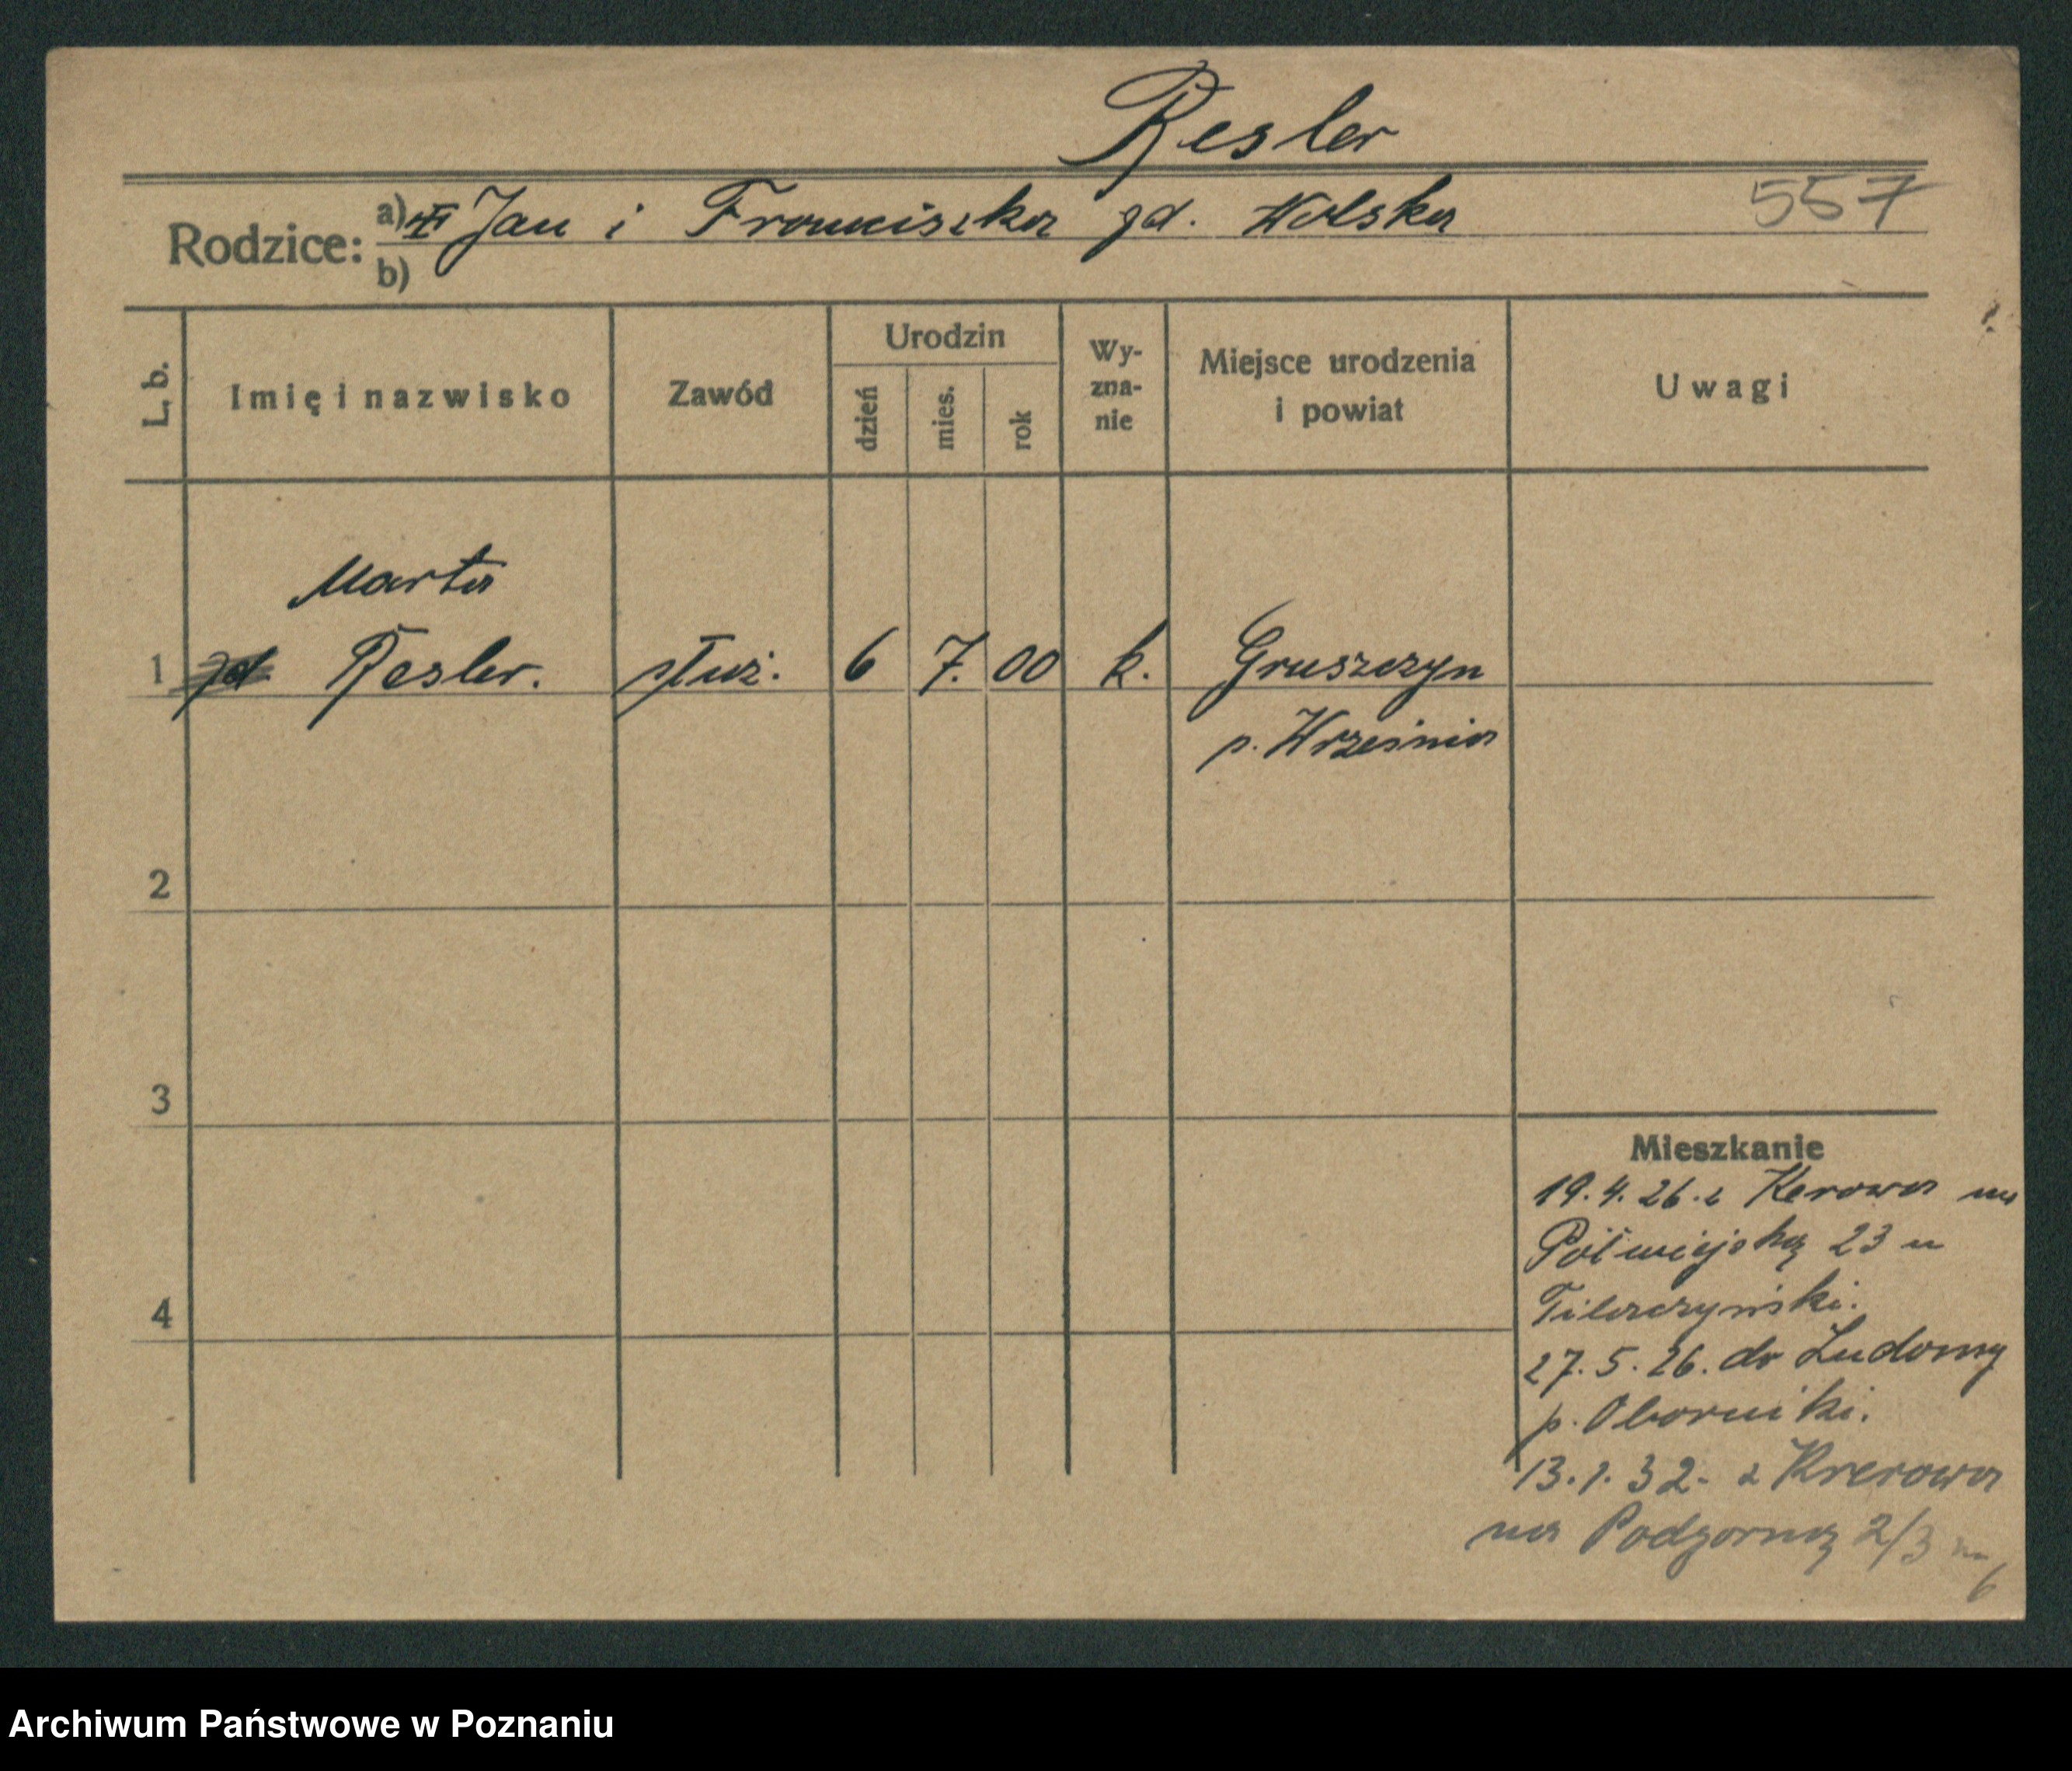 Resler
557
Rodzice: a) Jan i Franciszka zd. Wolska
b)
L. b.
Imię i nazwisko
Zawód
Urodzin
dzień
mies.
rok
Wy-
zna-
nie
Miejsce urodzenia
i powiat
Uwagi
Marta
1 Resler. służ. 6 7. 00 k. Gruszczyn
p. Września
2
3
4
Mieszkanie
19.4.26. z Kerowa na
Półwiejską 23 u
27.5.26. do Ludomy
p. Oborniki.
13.1.32. z Krerowa
na Podgorną 2/3 m
6
Archiwum Państwowe w Poznaniu